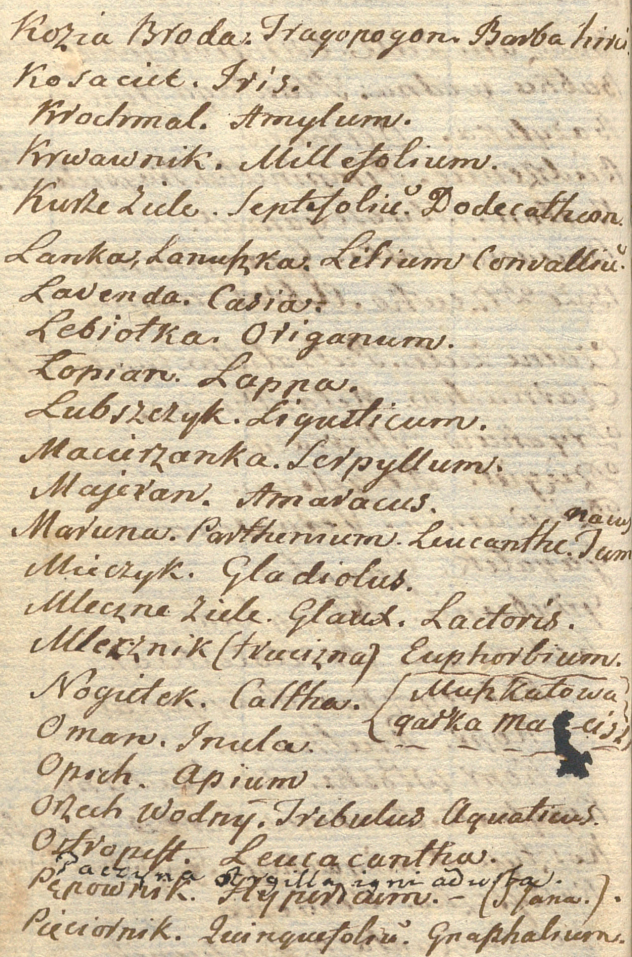 Kozia Broda. Tragopogon. Barba hirci
Kosaciec. Iris.
Krochmal. Amylum.
Krwawnik. Millefolium.
Kurze Ziele. Septifoliū. Dodecatheon.
Lanka, Lanuszka. Lilium Convalliū.
Lavenda. Casia.
Lebiotka. Origanum.
Łopian. Lappa.
Lubszczyk. Ligusticum.
Macierzanka. Serpyllum.
Majeran. Amaracus.
Maruna. Parthenium. Leucanthe.
Mieczyk. Gladiolus.
Mleczne Ziele. Glaux. Lactoris.
Mlecznik (trucizna) Euphorbium.
Nogietek. Caltha. (Muszkatowa
gałka
Oman. Inula.
Opich. Apium
Orzech wodny. Tribulus Aquaticus.
Ostropest. Leucacantha.
Paczyna argilla igni adusta.
Pępownik. Hypericum. – (S. Jana.).
Pięciornik. Quinquefoliū. Gnaphalium.